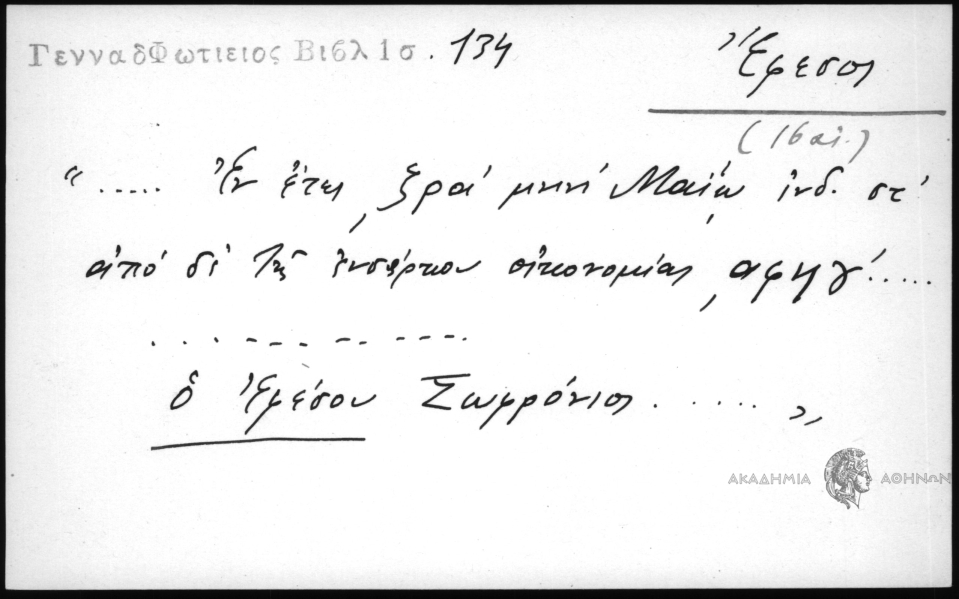 ΓενναδΦωτιειος Βιβλ 1σ. 134
Ἔφεσος
(16 αἰ.)
"..... Ἐν ἔτει ͵ζρα΄ μηνί Μαΐῳ ἰνδ. στ΄
ἀπό δέ τῆς ἐνσάρκου οἰκονομίας ͵αφηγ΄.....
ὁ Ἐφέσου Σωφρόνιος ...... "
ΑΚΑΔΗΜΙΑ ΑΘΗΝΩΝ